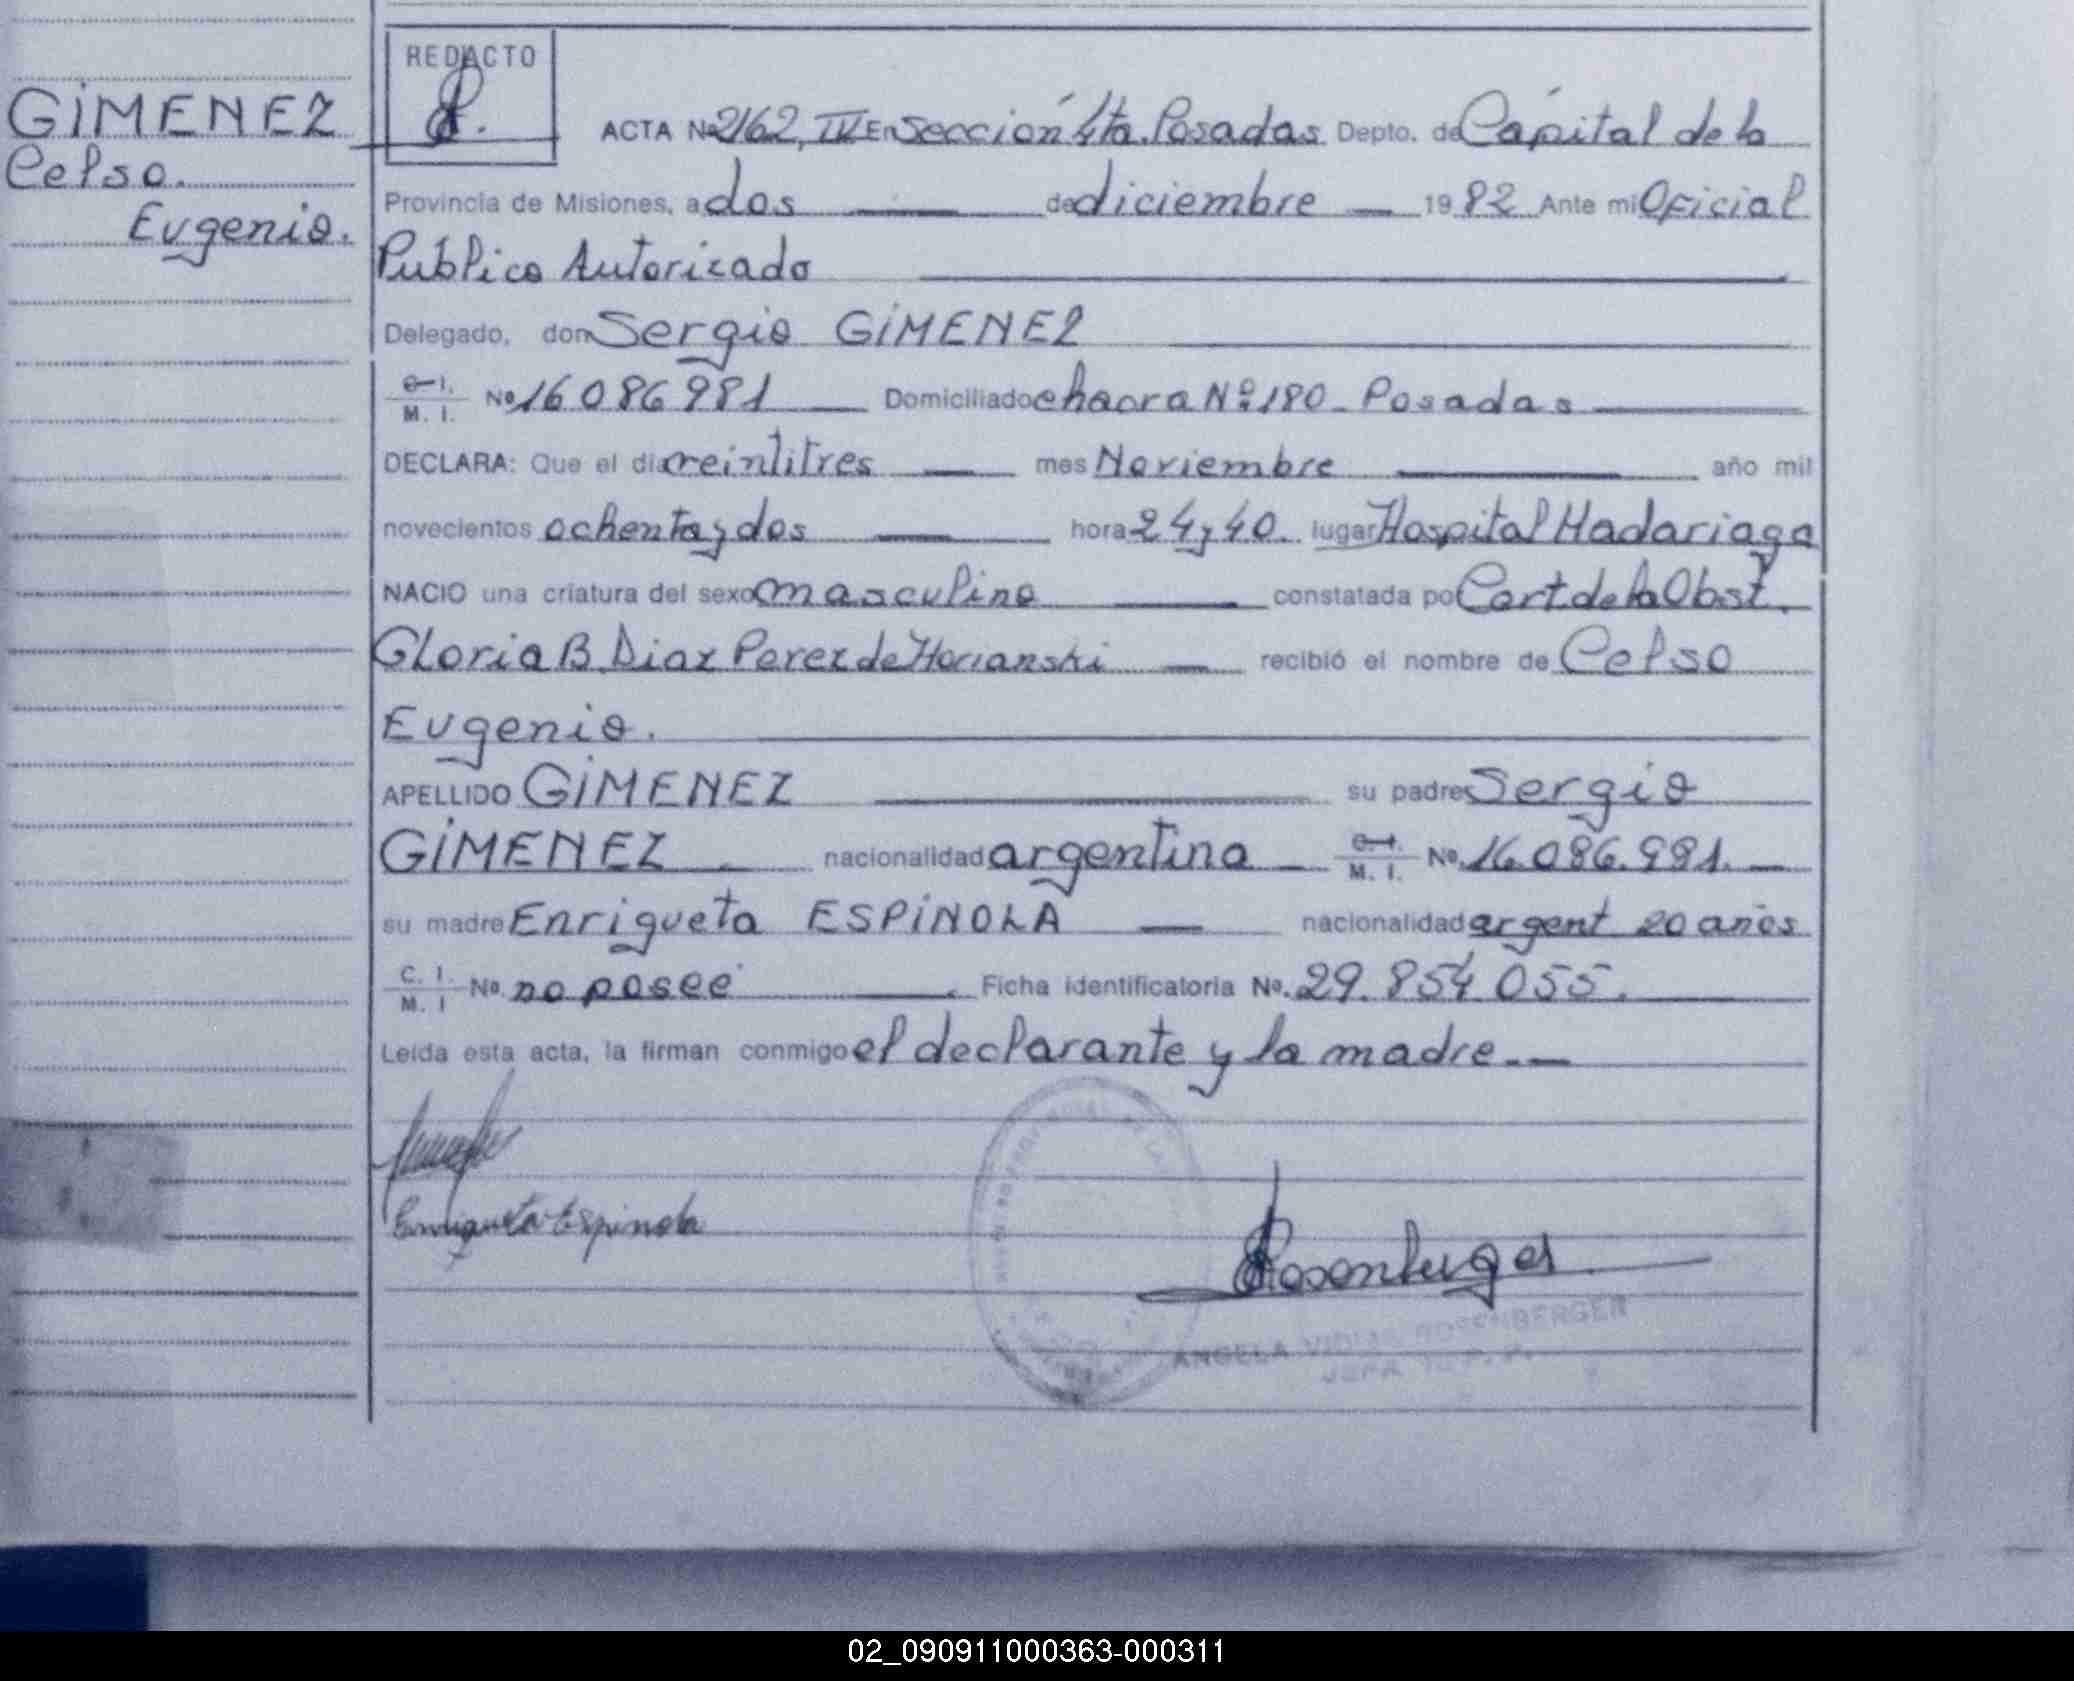 REDACTO
GIMENEZ
Celso.
Eugenio.
ACTA Nº 2162, IV En Sección 4ta. Posadas Depto. de Capital de la
Provincia de Misiones, a dos de diciembre 1982 Ante mi Oficial
Publico Autorizado
Delegado, don Sergio GIMENEZ
C.I. M. I. Nº 16086981 Domiciliado chacra Nº 180_ Posadas
DECLARA: Que el dia veintitres mes Noviembre año mil
novecientos ochenta y dos hora 24 y 40. lugar Hospital Madariaga
NACIO una criatura del sexo masculino constatada po Cert de la Obst.
Gloria B. Diaz Perez de recibió el nombre de Celso
Eugenio.
APELLIDO GIMENEZ su padre Sergio
GIMENEZ nacionalidad argentina C.I. M. I. No. 16.086.981.
su madre Enriqueta ESPINOLA nacionalidad argent 20 años
C. I. M. I No. no posee Ficha identificatoria No. 29.854 055.
Leída esta acta, la firman conmigo el declarante y la madre.
Enriqueta Espinola
Rosenberger
ANGELA ROSENBERGER
02_090911000363-000311